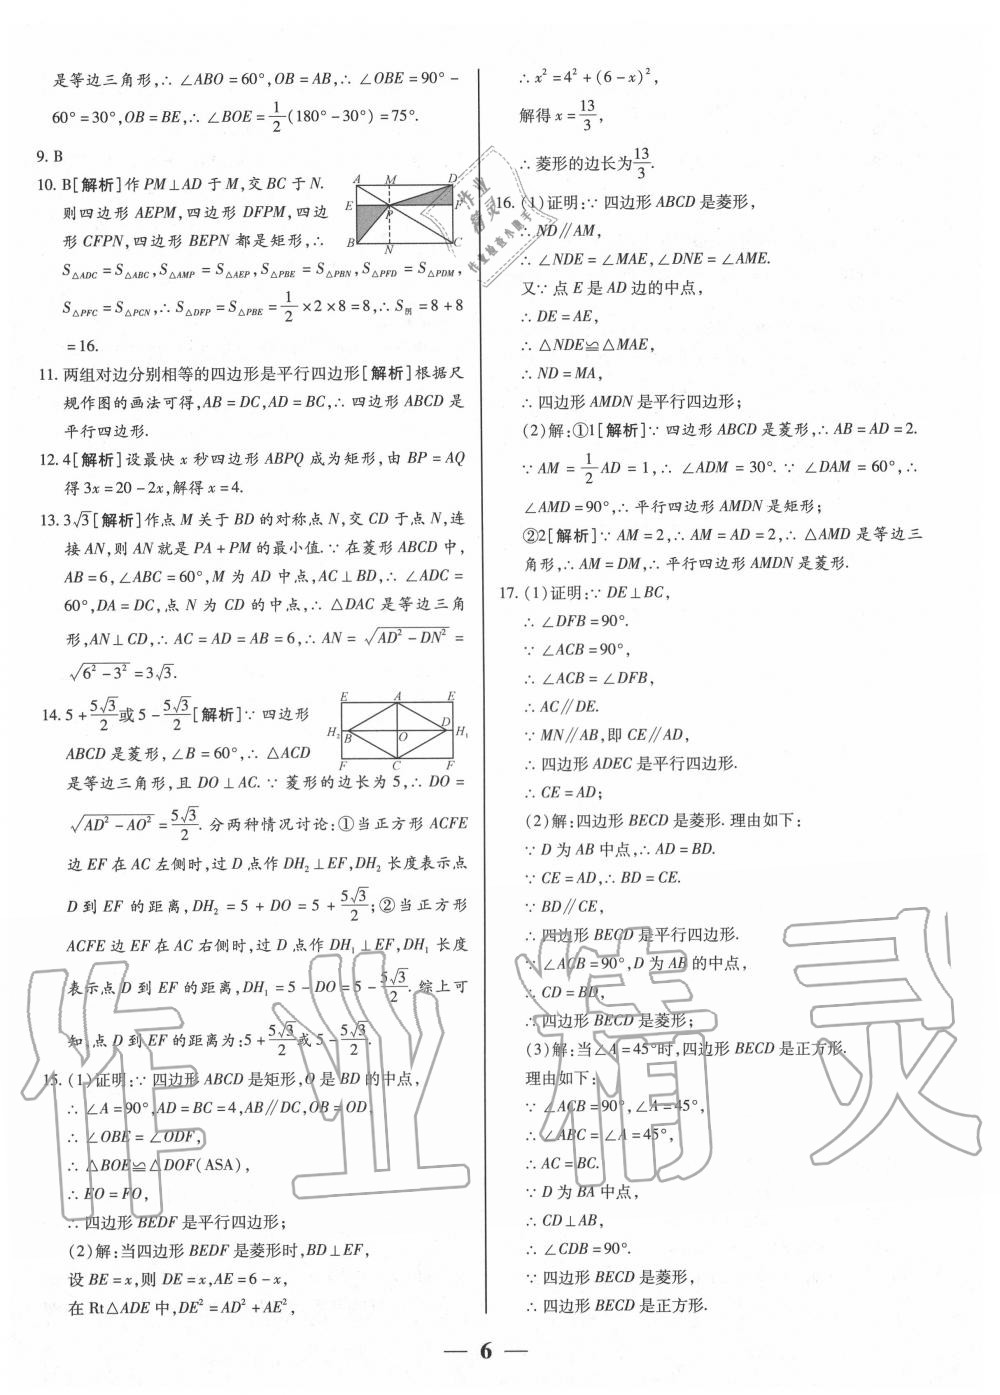 是等边三角形,∴ ∠ABO=60°,OB=AB,∴ ∠OBE=90°-
60°=30°,OB=BE,∴ ∠BOE=1/2(180°-30°)=75°.
9. B
10. B[解析]作 PM⊥AD 于 M,交 BC 于 N.
则四边形 AEPM,四边形 DFPM,四边
形 CFPN,四边形 BEPN 都是矩形,∴
S△ADC=S△ABC,S△AMP=S△AEP,S△PBE=S△PBN,S△PFD=S△PDM,
S△PFC=S△PCN,∴ S△DFP=S△PBE=1/2×2×8=8,∴ S阴=8+8
=16.
A M D
E P F
B N C
11. 两组对边分别相等的四边形是平行四边形[解析]根据尺
规作图的画法可得,AB=DC,AD=BC,∴ 四边形 ABCD 是
平行四边形.
12. 4[解析]设最快 x 秒四边形 ABPQ 成为矩形,由 BP=AQ
得3x=20-2x,解得 x=4.
13. 3√3[解析]作点 M 关于 BD 的对称点 N,交 CD 于点 N,连
接 AN,则 AN 就是 PA+PM 的最小值.∵ 在菱形 ABCD 中,
AB=6,∠ABC=60°,M 为 AD 中点,AC⊥BD,∴ ∠ADC=
60°,DA=DC,点 N 为 CD 的中点,∴ △DAC 是等边三角
形,AN⊥CD,∴ AC=AD=AB=6,∴ AN=√(AD²-DN²)=
√(6²-3²)=3√3.
14. 5+5√3/2或5-5√3/2[解析]∵ 四边形
ABCD 是菱形,∠B=60°,∴ △ACD
是等边三角形,且 DO⊥AC.∵ 菱形的边长为5,∴ DO=
√(AD²-AO²)=5√3/2.分两种情况讨论:①当正方形 ACFE
边 EF 在 AC 左侧时,过 D 点作 DH₂⊥EF,DH₂ 长度表示点
D 到 EF 的距离,DH₂=5+DO=5+5√3/2;②当正方形
ACFE 边 EF 在 AC 右侧时,过 D 点作 DH₁⊥EF,DH₁ 长度
表示点 D 到 EF 的距离,DH₁=5-DO=5-5√3/2.综上可
知,点 D 到 EF 的距离为:5+5√3/2或5-5√3/2.
E A E
H₂ B O D H₁
F C F
15. (1)证明:∵ 四边形 ABCD 是矩形,O 是 BD 的中点,
∴ ∠A=90°,AD=BC=4,AB∥DC,OB=OD,
∴ ∠OBE=∠ODF,
∴ △BOE≌△DOF(ASA),
∴ EO=FO,
∴ 四边形 BEDF 是平行四边形;
(2)解:当四边形 BEDF 是菱形时,BD⊥EF,
设 BE=x,则 DE=x,AE=6-x,
在 Rt△ADE 中,DE²=AD²+AE²,
∴ x²=4²+(6-x)²,
解得 x=13/3,
∴ 菱形的边长为13/3.
16. (1)证明:∵ 四边形 ABCD 是菱形,
∴ ND∥AM,
∴ ∠NDE=∠MAE,∠DNE=∠AME.
又∵ 点 E 是 AD 边的中点,
∴ DE=AE,
∴ △NDE≌△MAE,
∴ ND=MA,
∴ 四边形 AMDN 是平行四边形;
(2)解:①1[解析]∵ 四边形 ABCD 是菱形,∴ AB=AD=2.
∵ AM=1/2AD=1,∴ ∠ADM=30°.∵ ∠DAM=60°,∴
∠AMD=90°,∴ 平行四边形 AMDN 是矩形;
②2[解析]∵ AM=2,∴ AM=AD=2,∴ △AMD 是等边三
角形,∴ AM=DM,∴ 平行四边形 AMDN 是菱形.
17. (1)证明:∵ DE⊥BC,
∴ ∠DFB=90°.
∵ ∠ACB=90°,
∴ ∠ACB=∠DFB,
∴ AC∥DE.
∵ MN∥AB,即 CE∥AD,
∴ 四边形 ADEC 是平行四边形.
∴ CE=AD;
(2)解:四边形 BECD 是菱形.理由如下:
∵ D 为 AB 中点,∴ AD=BD.
∵ CE=AD,∴ BD=CE.
∵ BD∥CE,
∴ 四边形 BECD 是平行四边形.
∵ ∠ACB=90°,D 为 AB 的中点,
∴ CD=BD,
∴ 四边形 BECD 是菱形;
(3)解:当∠A=45°时,四边形 BECD 是正方形.
理由如下:
∵ ∠ACB=90°,∠A=45°,
∴ ∠ABC=∠A=45°,
∴ AC=BC.
∵ D 为 BA 中点,
∴ CD⊥AB,
∴ ∠CDB=90°.
∵ 四边形 BECD 是菱形,
∴ 四边形 BECD 是正方形.
— 6 —
作业精灵
作业
精灵
作业检查小助手